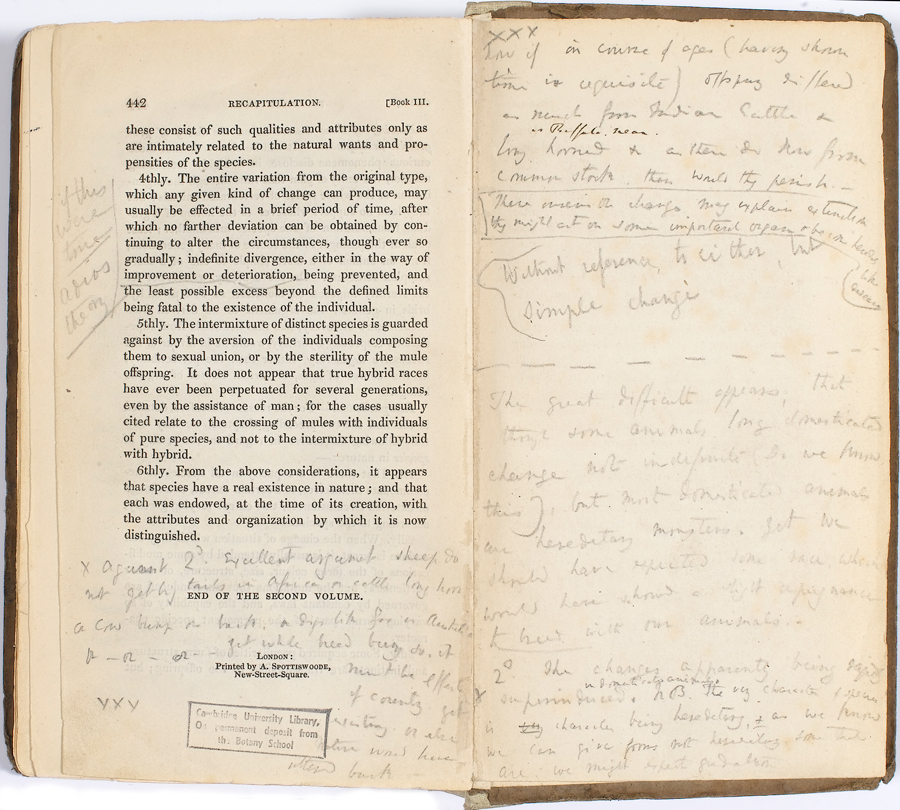 442 RECAPITULATION. [Book III.
these consist of such qualities and attributes only as
are intimately related to the natural wants and pro-
pensities of the species.
4thly. The entire variation from the original type,
which any given kind of change can produce, may
usually be effected in a brief period of time, after
which no farther deviation can be obtained by con-
tinuing to alter the circumstances, though ever so
gradually; indefinite divergence, either in the way of
improvement or deterioration, being prevented, and
the least possible excess beyond the defined limits
being fatal to the existence of the individual.
5thly. The intermixture of distinct species is guarded
against by the aversion of the individuals composing
them to sexual union, or by the sterility of the mule
offspring. It does not appear that true hybrid races
have ever been perpetuated for several generations,
even by the assistance of man; for the cases usually
cited relate to the crossing of mules with individuals
of pure species, and not to the intermixture of hybrid
with hybrid.
6thly. From the above considerations, it appears
that species have a real existence in nature; and that
each was endowed, at the time of its creation, with
the attributes and organization by which it is now
distinguished.
if this
were
true
adios
theory
X against 2° Excellent argument sheep do
not get big tails in Africa or cattle long horns
END OF THE SECOND VOLUME.
a cow hump on back, a dog like fox in
LONDON:
Printed by A. SPOTTISWOODE,
New-Street-Square.
must be effects
of country
XXX
Cambridge University Library,
On permanent deposit from
the Botany School
XXX
if in course of ages (having shown
time is requisite) offspring differed
as much from Indian Cattle &
as Buffalo. near.
long horned & as them do now from
common stock, then would they perish.—
These changes may explain extinction
they might act on some important organ
Without reference to either, but
simple change
The great difficult appears, that
though some animals long domesticated
change not indefinite (do we know
this), but most domesticated animals
are hereditary monsters. Yet we
should have expected some race when
would have showed a slight repugnance
to breed with our animals.—
2° The changes apparently being
superinduced, NB. The very character of species
in domesticated animals
is character being hereditary, & as we know
we can give forms not hereditary some that
are, we might expect gradation